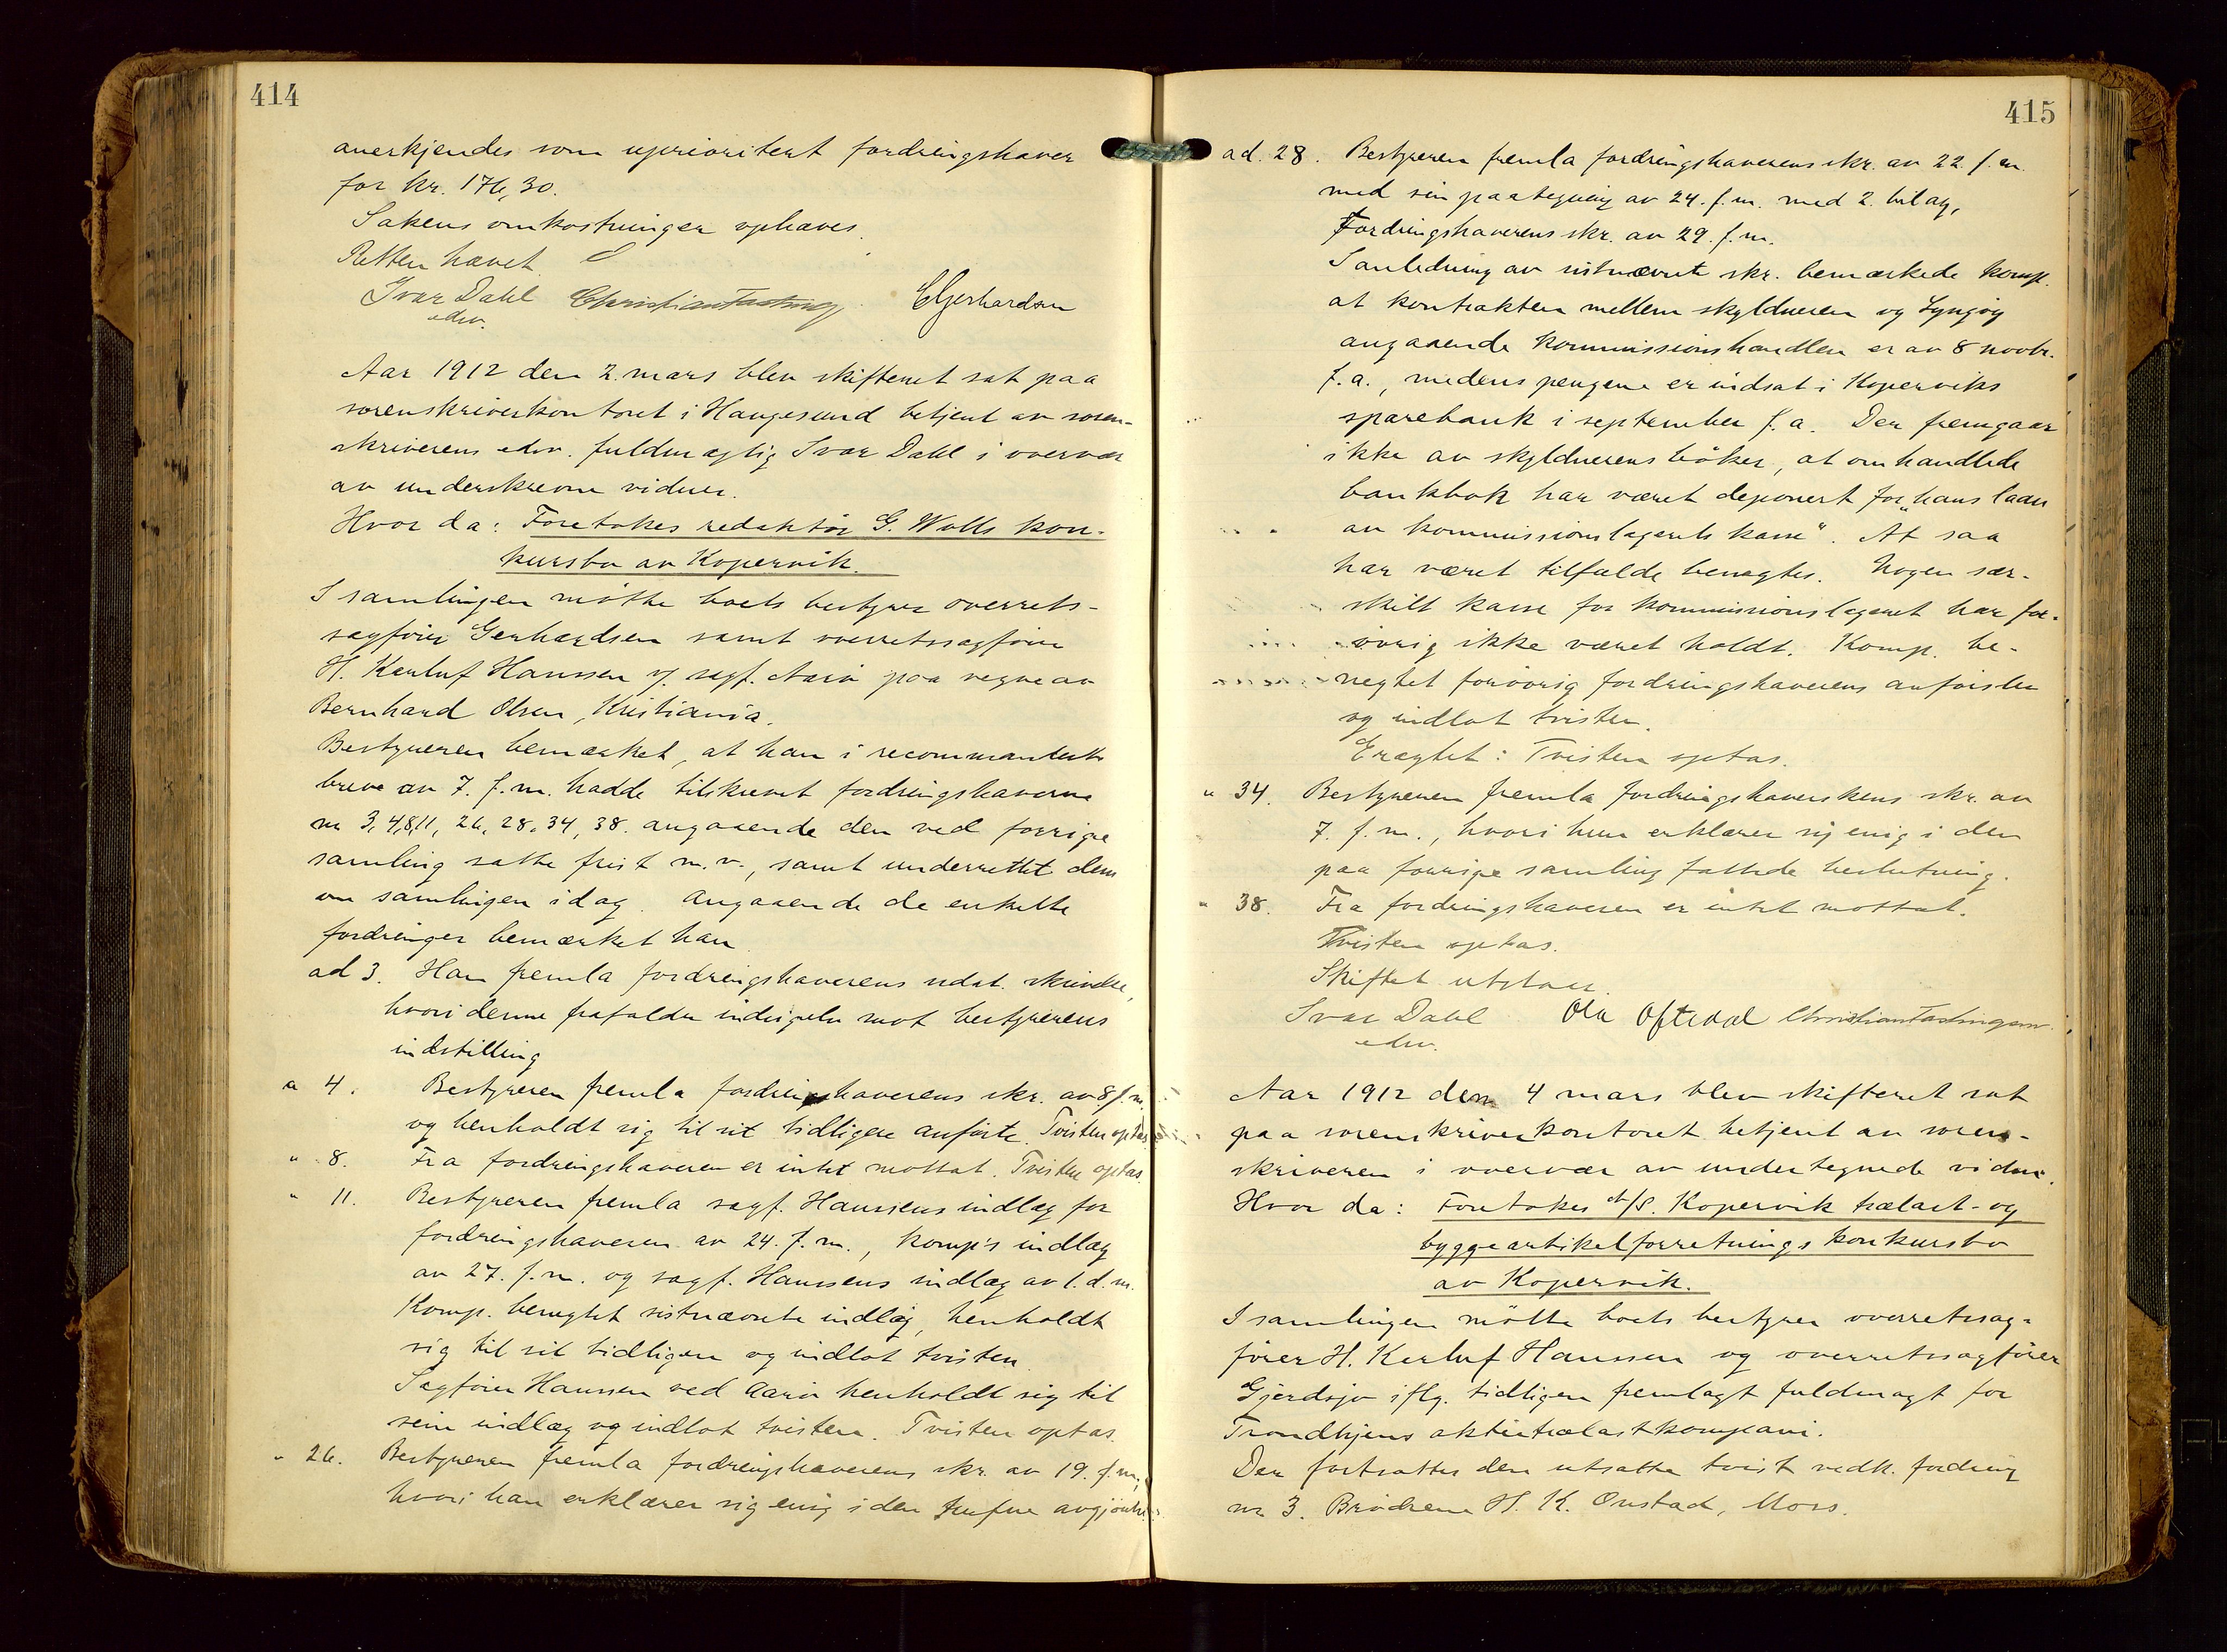 414
anerkjendes som uprioritert fordringshaver
for kr. 176,30.
Sakens omkostninger ophæves.
Retten hævet.
Ivar Dahl Christian Fastnings CGerhardsen
edsv.
Aar 1912 den 2. mars blev skifteret sat paa
sorenskriverkontoret i Haugesund betjent av soren-
skriverens edsv. fuldmægtig Ivar Dahl i overvær
av underskrevne vidner.
Hvor da: Foretokes redaktør G. Walls kon-
kursbo av Kopervik.
I samlingen møtte boets bestyrer overrets-
sagfører Gerhardsen samt overretssagfører
H. Kerluf Hanssen v/ sagf. Aarø paa vegne av
Bernhard Olsen, Kristiania.
Bestyreren bemærket, at han i recommanderte
breve av 7. f.m. hadde tilskrevet fordringshaverne
nr 3, 4, 8, 11, 26, 28, 34, 38. angaaende den ved forrige
samling satte frist m.v., samt underrettet dem
om samlingen idag. Angaaende de enkelte
fordringer bemærket han
ad 3. Han fremla fordringshaverens udat. skrivelse,
hvori denne frafalder indsigelse mot bestyrerens
indstilling
" 4. Bestyreren fremla fordringshaverens skr. av 8 f.m.
og henholdt sig til sit tidligere anførte. Tvisten optas.
" 8. Fra fordringshaveren er intet mottat. Tvisten optas.
" 11. Bestyreren fremla sagf. Hanssens indlæg for
fordringshaveren av 24. f.m., komp's indlæg
av 27. f.m. og sagf. Hanssens indlæg av 1. d.m.
Komp. benegtet sistnævnte indlæg, henholdt
sig til sit tidligere og indlot tvisten.
Sagfører Hanssen ved Aarø henholdt sig til
sin indlæg og indlot tvisten. Tvisten optas.
" 26. Bestyreren fremla fordringshaverens skr. av 19. f.m.,
hvori han erklærer sig enig i den trufne avgjørelse.
415
ad. 28. Bestyreren fremla fordringshaverens skr. av 22. f.m.
med sin paategning av 24. f.m. med 2. bilag,
Fordringshaverens skr. av 29. f.m.
I anledning av sistnævnte skr. bemærkede komp.
at kontrakten mellem skyldneren og Lyngøy
angaaende kommissionshandlen er av 8 novbr.
f.a., medens pengene er indsat i Koperviks
sparebank i september f.a. Der fremgaar
ikke av skyldnerens bøker, at omhandlede
bankbok har været deponert for "hans laan
av kommissionslagerets kasse". At saa
har været tilfælde benegtes. Nogen sær-
skilt kasse for kommissionslageret har for-
øvrig ikke været holdt. Komp. be-
negtet forøvrig fordringshaverens anførsler
og indlot tvisten.
Eragtet: Tvisten optas.
" 34. Bestyreren fremla fordringshaverskens skr. av
7. f.m., hvori hun erklærer sig enig i den
paa forrige samling fattede beslutning.
" 38. Fra fordringshaveren er intet mottat.
Tvisten optas.
Skiftet utstaar.
Ivar Dahl Ola Oftedal
edsv.
Aar 1912 den 4 mars blev skifteret sat
paa sorenskriverkontoret betjent av soren-
skriveren i overvær av undertegnede vidner.
Hvor da: Foretokes A/S. Kopervik trælast- og
byggeartikelforretnings konkursbo
av Kopervik.
I samlingen møtte boets bestyrer overretssag-
fører H. Kerluf Hanssen og overretssagfører
Gjerdsjø iflg. tidligere fremlagt fuldmagt for
Trondhjems aktietrælastkompani.
Der fortsattes den utsatte tvist vedk. fordring
nr 3. Brødrene H. K. Onstad, Moss.